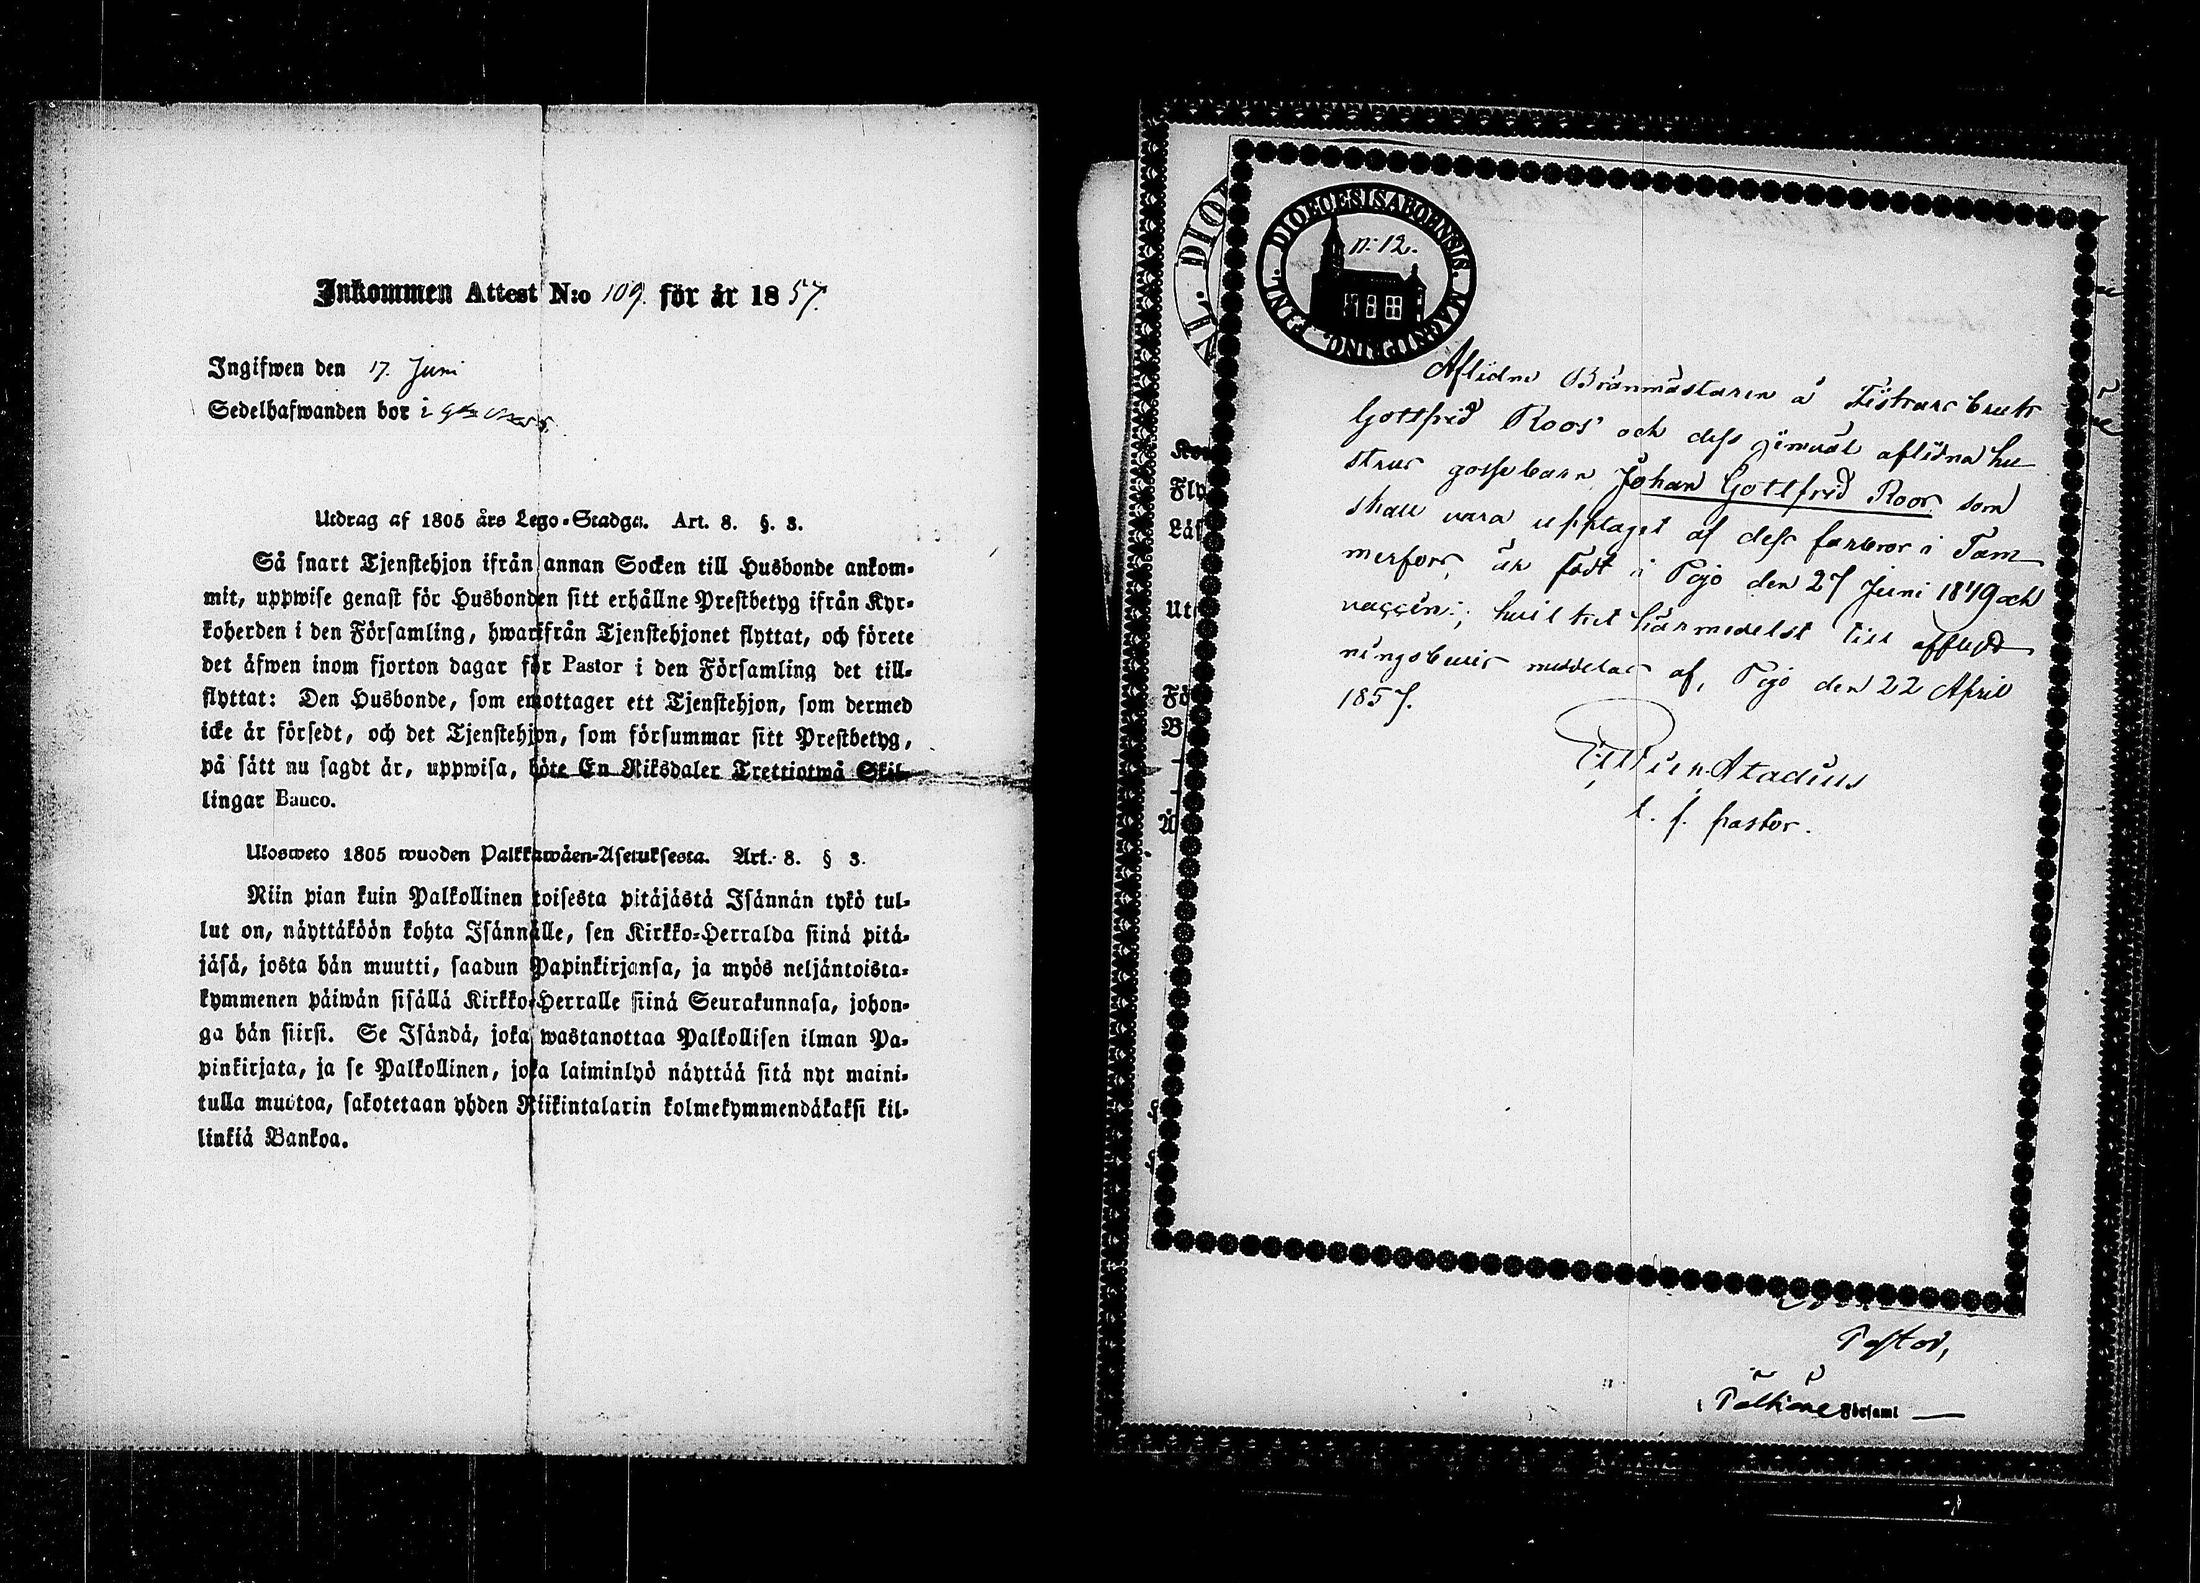 Inkommen Attest N:o 109. för år 1857.
Ingifwen den 17. Juni
Sedelhafwanden bor i
Utdrag af 1805 års Lego-Stadga. Art. 8. §. 3.
Så snart Tjenstehjon ifrån annan Socken till Husbonde ankom-
mit, uppwise genast för Husbonden sitt erhållne Prestbetyg ifrån Kyr-
koherden i den Församling, hwarifrån Tjenstehjonet flyttat, och förete
det äfwen inom fjorton dagar för Pastor i den Församling det till-
flyttat: Den Husbonde, som emottager ett Tjenstehjon, som dermed
icke är försedt, och det Tjenstehjon, som försummar sitt Prestbetyg,
på sätt nu sagdt är, uppwisa, böte En Riksdaler Trettiotwå Skil-
lingar Banco.
Ulosweto 1805 wuoden Palkkawäen-Asetuksesta. Art. 8. § 3.
Niin pian kuin Palkollinen toisesta pitäjästä Isännän tykö tul-
lut on, näyttäköön kohta Isännälle, sen Kirkko-Herralda siinä pitä-
jäsä, josta hän muutti, saadun Papinkirjansa, ja myös neljäntoista-
kymmenen päiwän sisällä Kirkko-Herralle siinä Seurakunnasa, johon-
ga hän siirsi. Se Isändä, joka wastanottaa Palkollisen ilman Pa-
pinkirjata, ja se Palkollinen, joka laiminlyö näyttää sitä nyt maini-
tulla muotoa, sakotetaan yhden Riikintalarin kolmekymmendäkaksi kil-
linkiä Bankoa.
DIOECESIS ABOENSIS. MAGNI PRINC. FINL.
N:12.
Aflidne Brånmästaren å Fiskars bruk
Gottfrid Roos' och dess jemväl aflidna hu
strus gossebarn Johan Gottfrid Roos som
skall vara upptaget af dess farbror i Tam
merfors, är född i Pojo den 27 Juni 1849 och
vaccin:; hvilket härmedelst till afflytt
ningsbevis meddelas af, Pojo den 22 April
1857.
Stadius
t. f. pastor.
Pastor,
i Pälkäne Församl